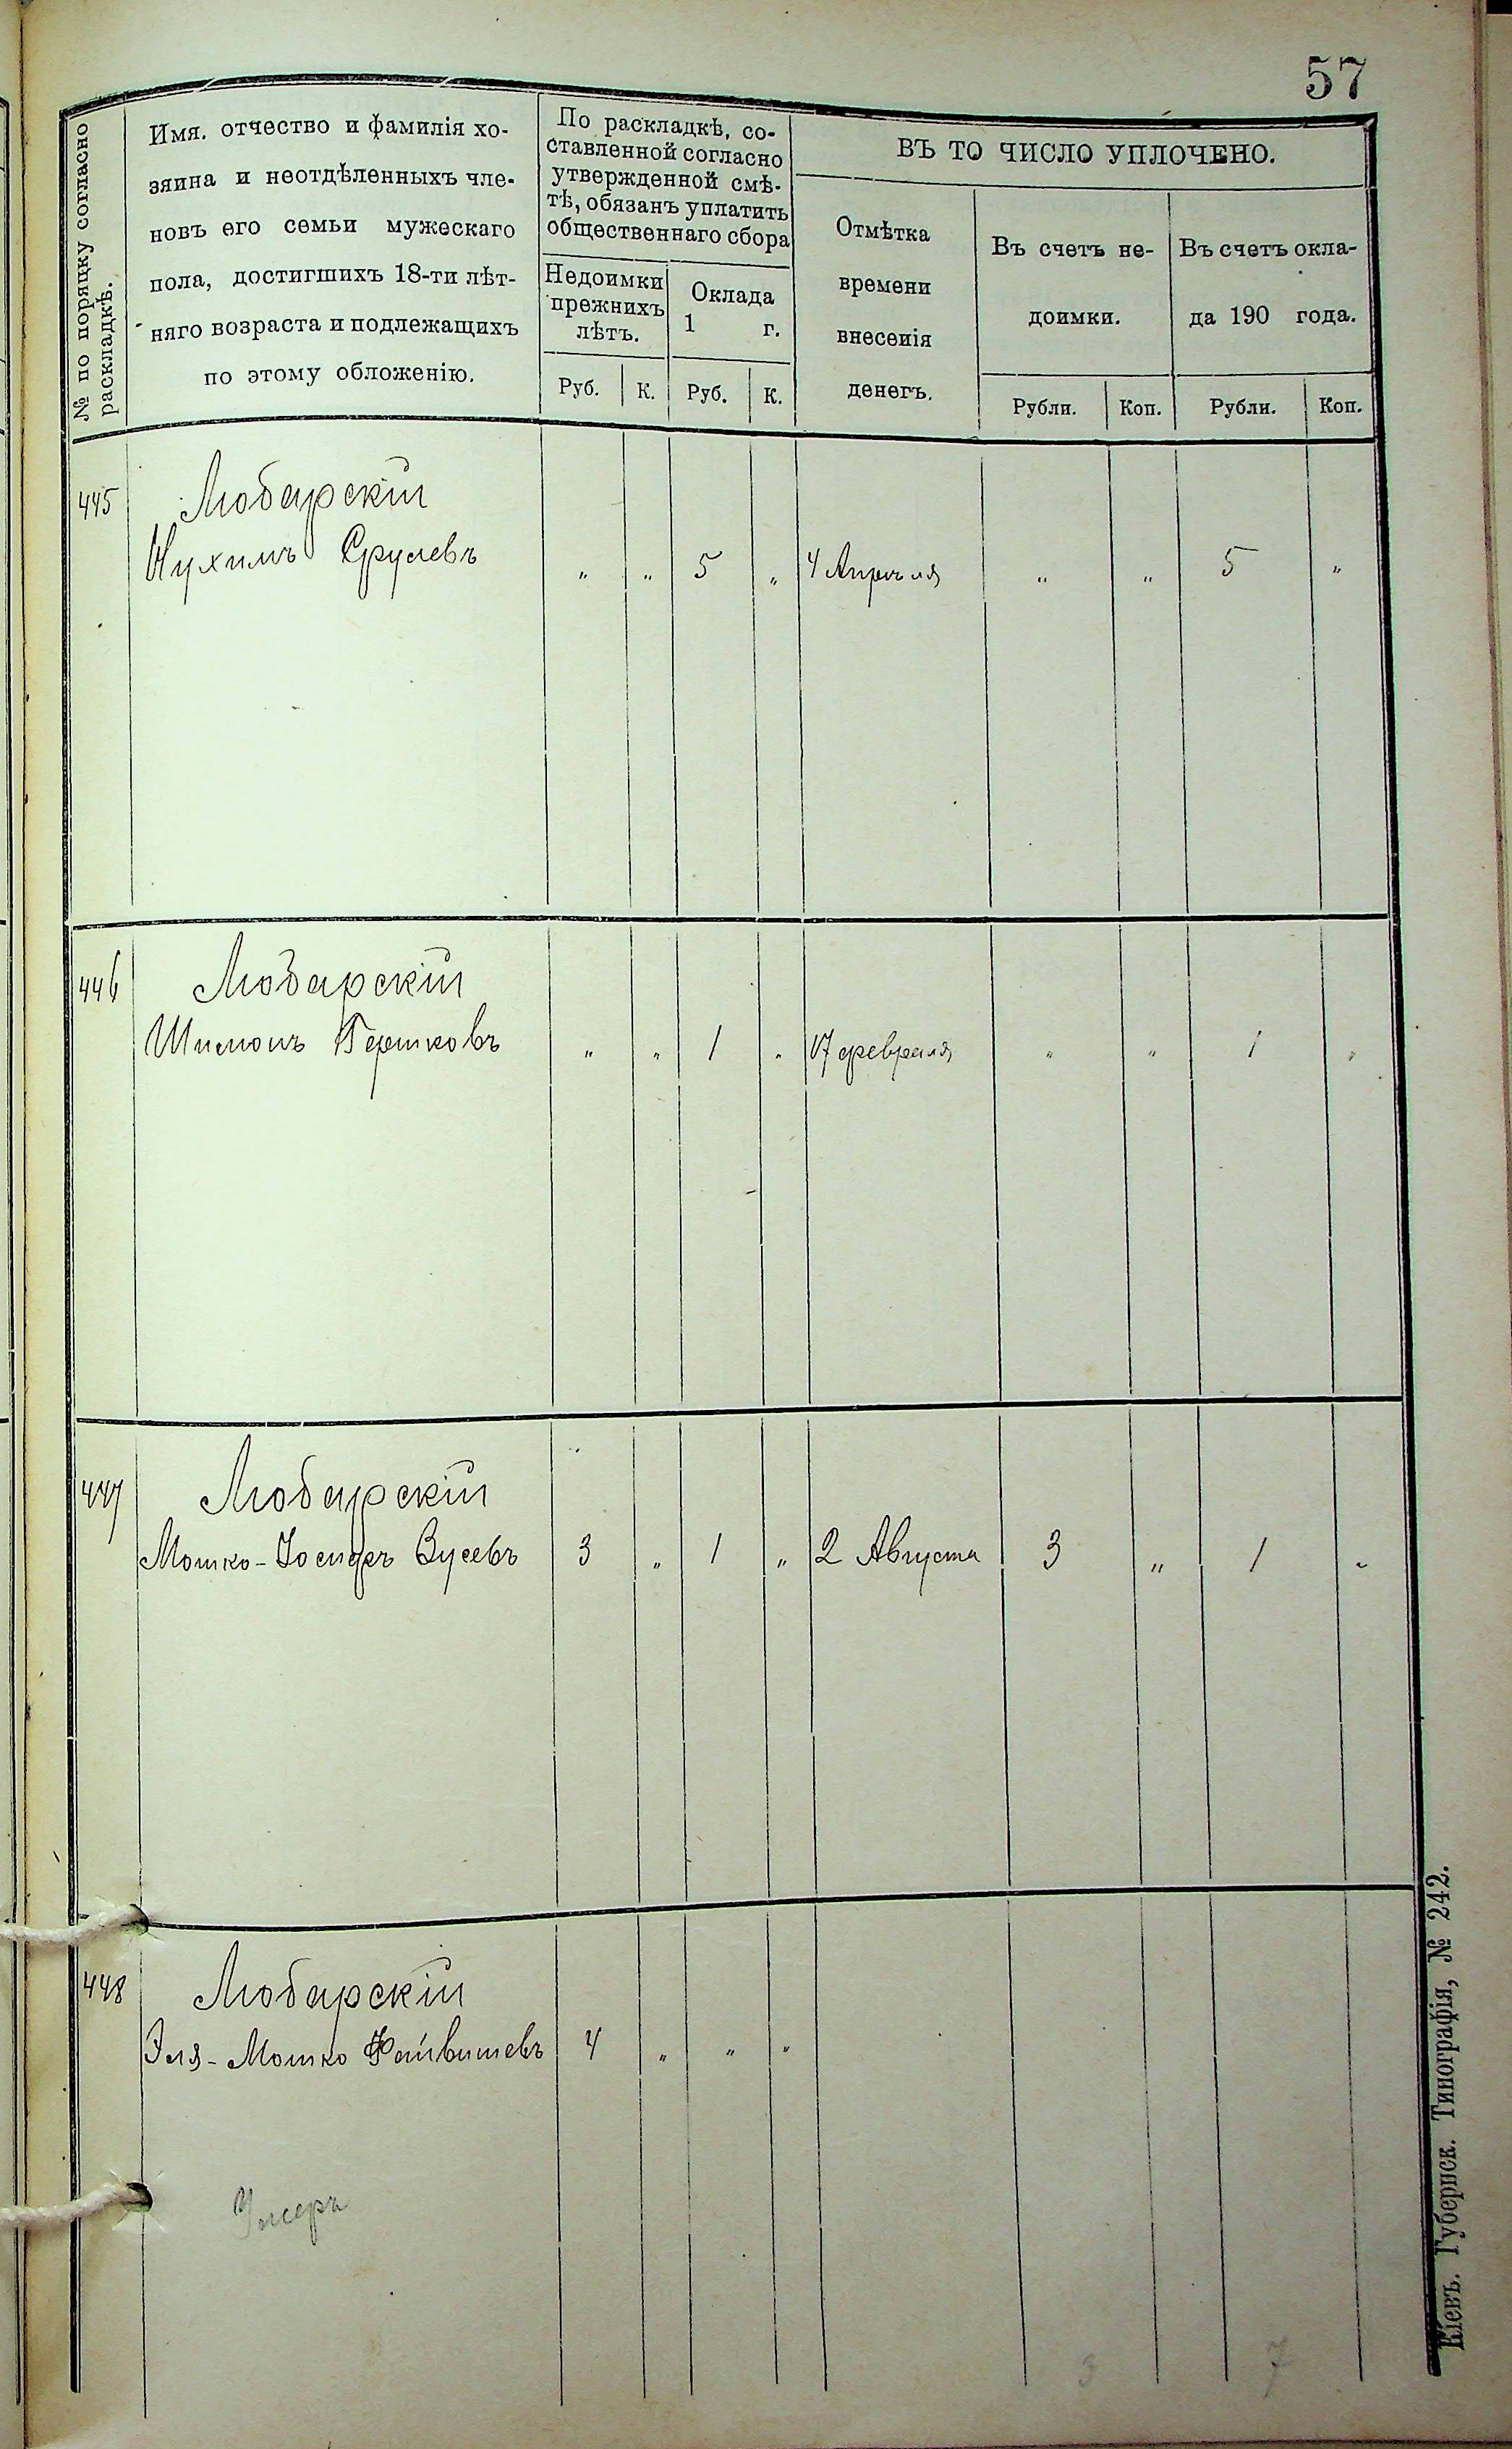 57
№ по порядку согласно
раскладкѣ.
Имя. отчество и фамилія хо-
зяина и неотдѣленныхъ чле-
новъ его семьи мужескаго
пола, достигшихъ 18-ти лѣт-
няго возраста и подлежащихъ
по этому обложенію.
По раскладкѣ, со-
ставленной согласно
утвержденной смѣ-
тѣ, обязанъ уплатить
общественнаго сбора
Недоимки
прежнихъ
лѣтъ.
Оклада
1 г.
Руб. К. Руб. К.
ВЪ ТО ЧИСЛО УПЛОЧЕНО.
Отмѣтка
времени
внесенія
денегъ.
Въ счетъ не-
доимки.
Въ счетъ окла-
да 190 года.
Рубли. Коп. Рубли. Коп.
445 Любарскій
Нухимъ Срулевъ „ „ 5 „ 4 Апрѣля „ „ 5 „
446 Любарскій
Шимонъ Гершковъ „ „ 1 „ 17 февраля „ „ 1 „
447 Любарскій
Мошко-Іосифъ Зусевъ 3 „ 1 „ 2 Августа 3 „ 1 „
448 Любарскій
Эля-Мошко Файвишевъ 4 „ „ „
Умеръ
3 7
Кіевъ. Губернск. Типографія, № 242.